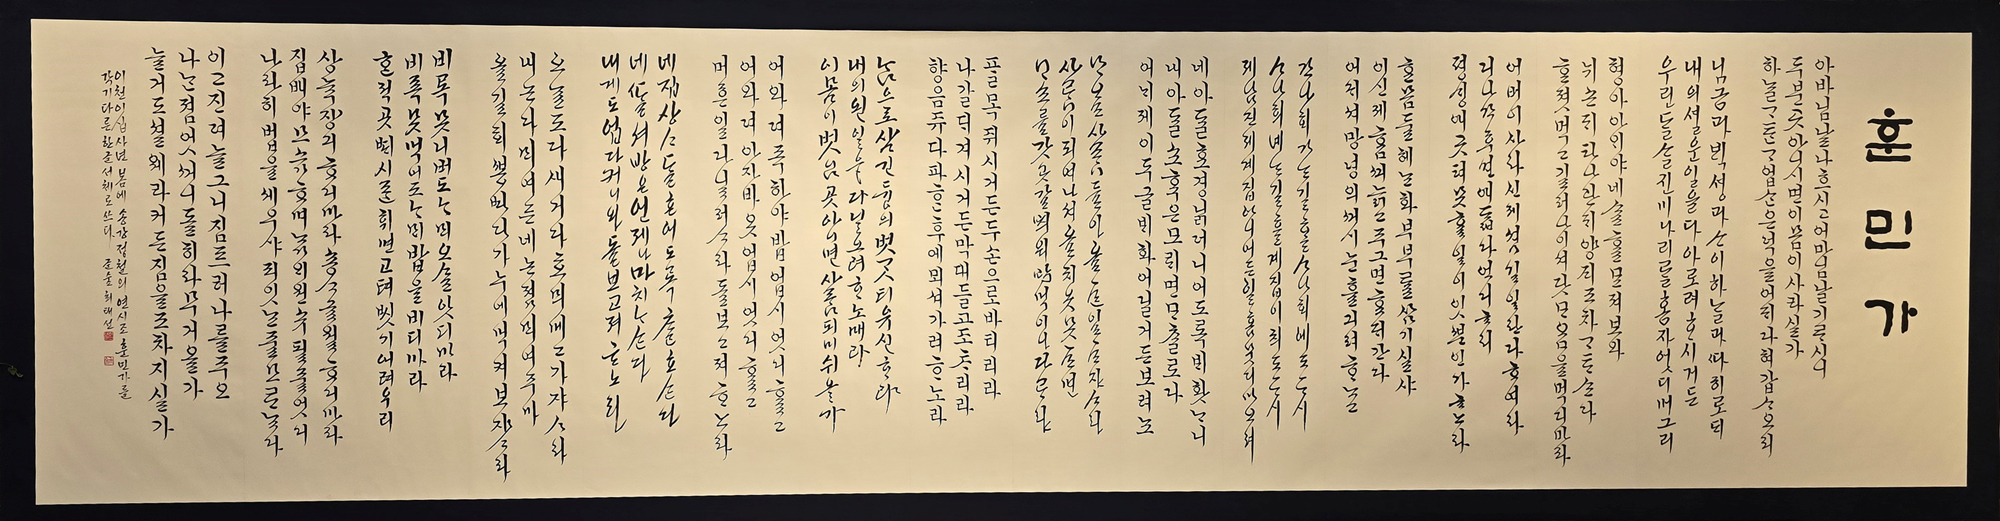 훈민가
아바님날나ᄒᆞ시고어마님날기ᄅᆞ시니
두분곳아니시면이몸이사라실가
하ᄂᆞᆯᄀᆞᄐᆞᆫᄀᆞ업ᄉᆞᆫ은덕을어ᄃᆡ다혀갑ᄉᆞ오리
님금과ᄇᆡᆨ셩과ᄉᆞ이하ᄂᆞᆯ과ᄯᅡ히로ᄃᆡ
내의셜운일을다아로려ᄒᆞ시거든
우린ᄃᆞᆯᄉᆞᆯ진미나리ᄅᆞᆯ홈자엇디머그리
형아아ᄋᆡ야네ᄉᆞᆯᄒᆞᆯᄆᆞᆫ져보와
뉘손ᄃᆡ타나관ᄃᆡ양ᄌᆡ조차ᄀᆞᄐᆞᆫᄉᆞᆫ다
ᄒᆞᆫ졋먹고길러나이셔닷ᄆᆞᄋᆞᆷ을먹디마라
어버이사라신제셤길일란다ᄒᆞ여라
디나간후면애ᄃᆞᆲ다엇디ᄒᆞ리
평ᄉᆡᆼ애곳텨못ᄒᆞᆯ일이잇ᄲᅮᆫ인가ᄒᆞ노라
ᄒᆞᆫ몸둘헤ᄂᆞᆫ화부부ᄅᆞᆯ삼기실샤
이신제ᄒᆞᆷᄭᅴ늙고주그면ᄒᆞᆫᄃᆡ간다
어ᄃᆡ셔망녕의ᄭᅥ시눈흘긔려ᄒᆞᄂᆞᆫ고
간나희가ᄂᆞᆫ길흘ᄉᆞ나희에도ᄃᆞ시
ᄉᆞ나희녜ᄂᆞᆫ길흘계집이츼도ᄃᆞ시
제남진제계집아니어든일홈뭇디마오려
네아ᄃᆞᆯ효경닑더니어도록ᄇᆡ홧ᄂᆞ니
내아ᄃᆞᆯ쇼ᄒᆞᆨ은모ᄅᆡ면ᄆᆞᄎᆞᆯ로다
어ᄂᆡ제이두글ᄇᆡ화어딜거든보려뇨
ᄆᆞᄋᆞᆯ사ᄅᆞᆷ들아올ᄒᆞᆫ일ᄒᆞ쟈ᄉᆞ라
사ᄅᆞᆷ이되여나셔올티옷못ᄒᆞ면
ᄆᆞ쇼ᄅᆞᆯ갓곳갈싀워밥먹이나다ᄅᆞ랴
ᄑᆞᆯ목쥐시거든두손으로바티리라
나갈ᄃᆡ겨시거든막대들고조ᄎᆞ리라
향음쥬다파ᄒᆞᆫ후에뫼셔가려ᄒᆞ노라
ᄂᆞᆷ으로삼긴듕의벗ᄀᆞ티유신ᄒᆞ랴
내의왼일을다닐오려ᄒᆞ노매라
이몸이벗님곳아니면사ᄅᆞᆷ되미쉬올가
어와뎌족하야밥업시엇디ᄒᆞᆯ고
어와뎌아자바옷업시엇디ᄒᆞᆯ고
머흔일다닐러ᄉᆞ라돌보고져ᄒᆞ노라
네집상ᄉᆞᄃᆞᆯ흔어도록ᄎᆞᆯ호ᄉᆞᆫ다
네ᄯᆞᆯ셔방은언제나마치ᄂᆞᆫᄉᆞᆫ다
내게도업다커니와돌보고져ᄒᆞ노라
오ᄂᆞᆯ도다새거다호믜메고가쟈ᄉᆞ라
내논다ᄆᆡ여든네논졈ᄆᆡ여주마
올길ᄒᆡᄲᅩᆼᄯᅡ다가누에먹켜보쟈ᄉᆞ라
비록못니버도ᄂᆞᄆᆡ오ᄉᆞᆯ앗디마라
비록못먹어도ᄂᆞᄆᆡ밥을비디마라
ᄒᆞᆫ적곳ᄠᆡ시ᄅᆞᆫ휘면고텨벗기어려우리
상뉵쟝긔ᄒᆞ디마라숑ᄉᆞ글월ᄒᆞ디마라
집배야므슴ᄒᆞ며ᄂᆞᄆᆡ원수될줄엇디
나라히법을세우샤죄잇ᄂᆞᆫ줄모로ᄂᆞᆫ다
이고진뎌늘그니짐프러나ᄅᆞᆯ주오
나ᄂᆞᆫ졈엇ᄭᅥ니돌히라무거올가
늘거도셜웨라커든짐을조차지실가
이천이십사년 봄에 송강정철의 연시조 훈민가를
각기다른한글서체로쓰다 최태선